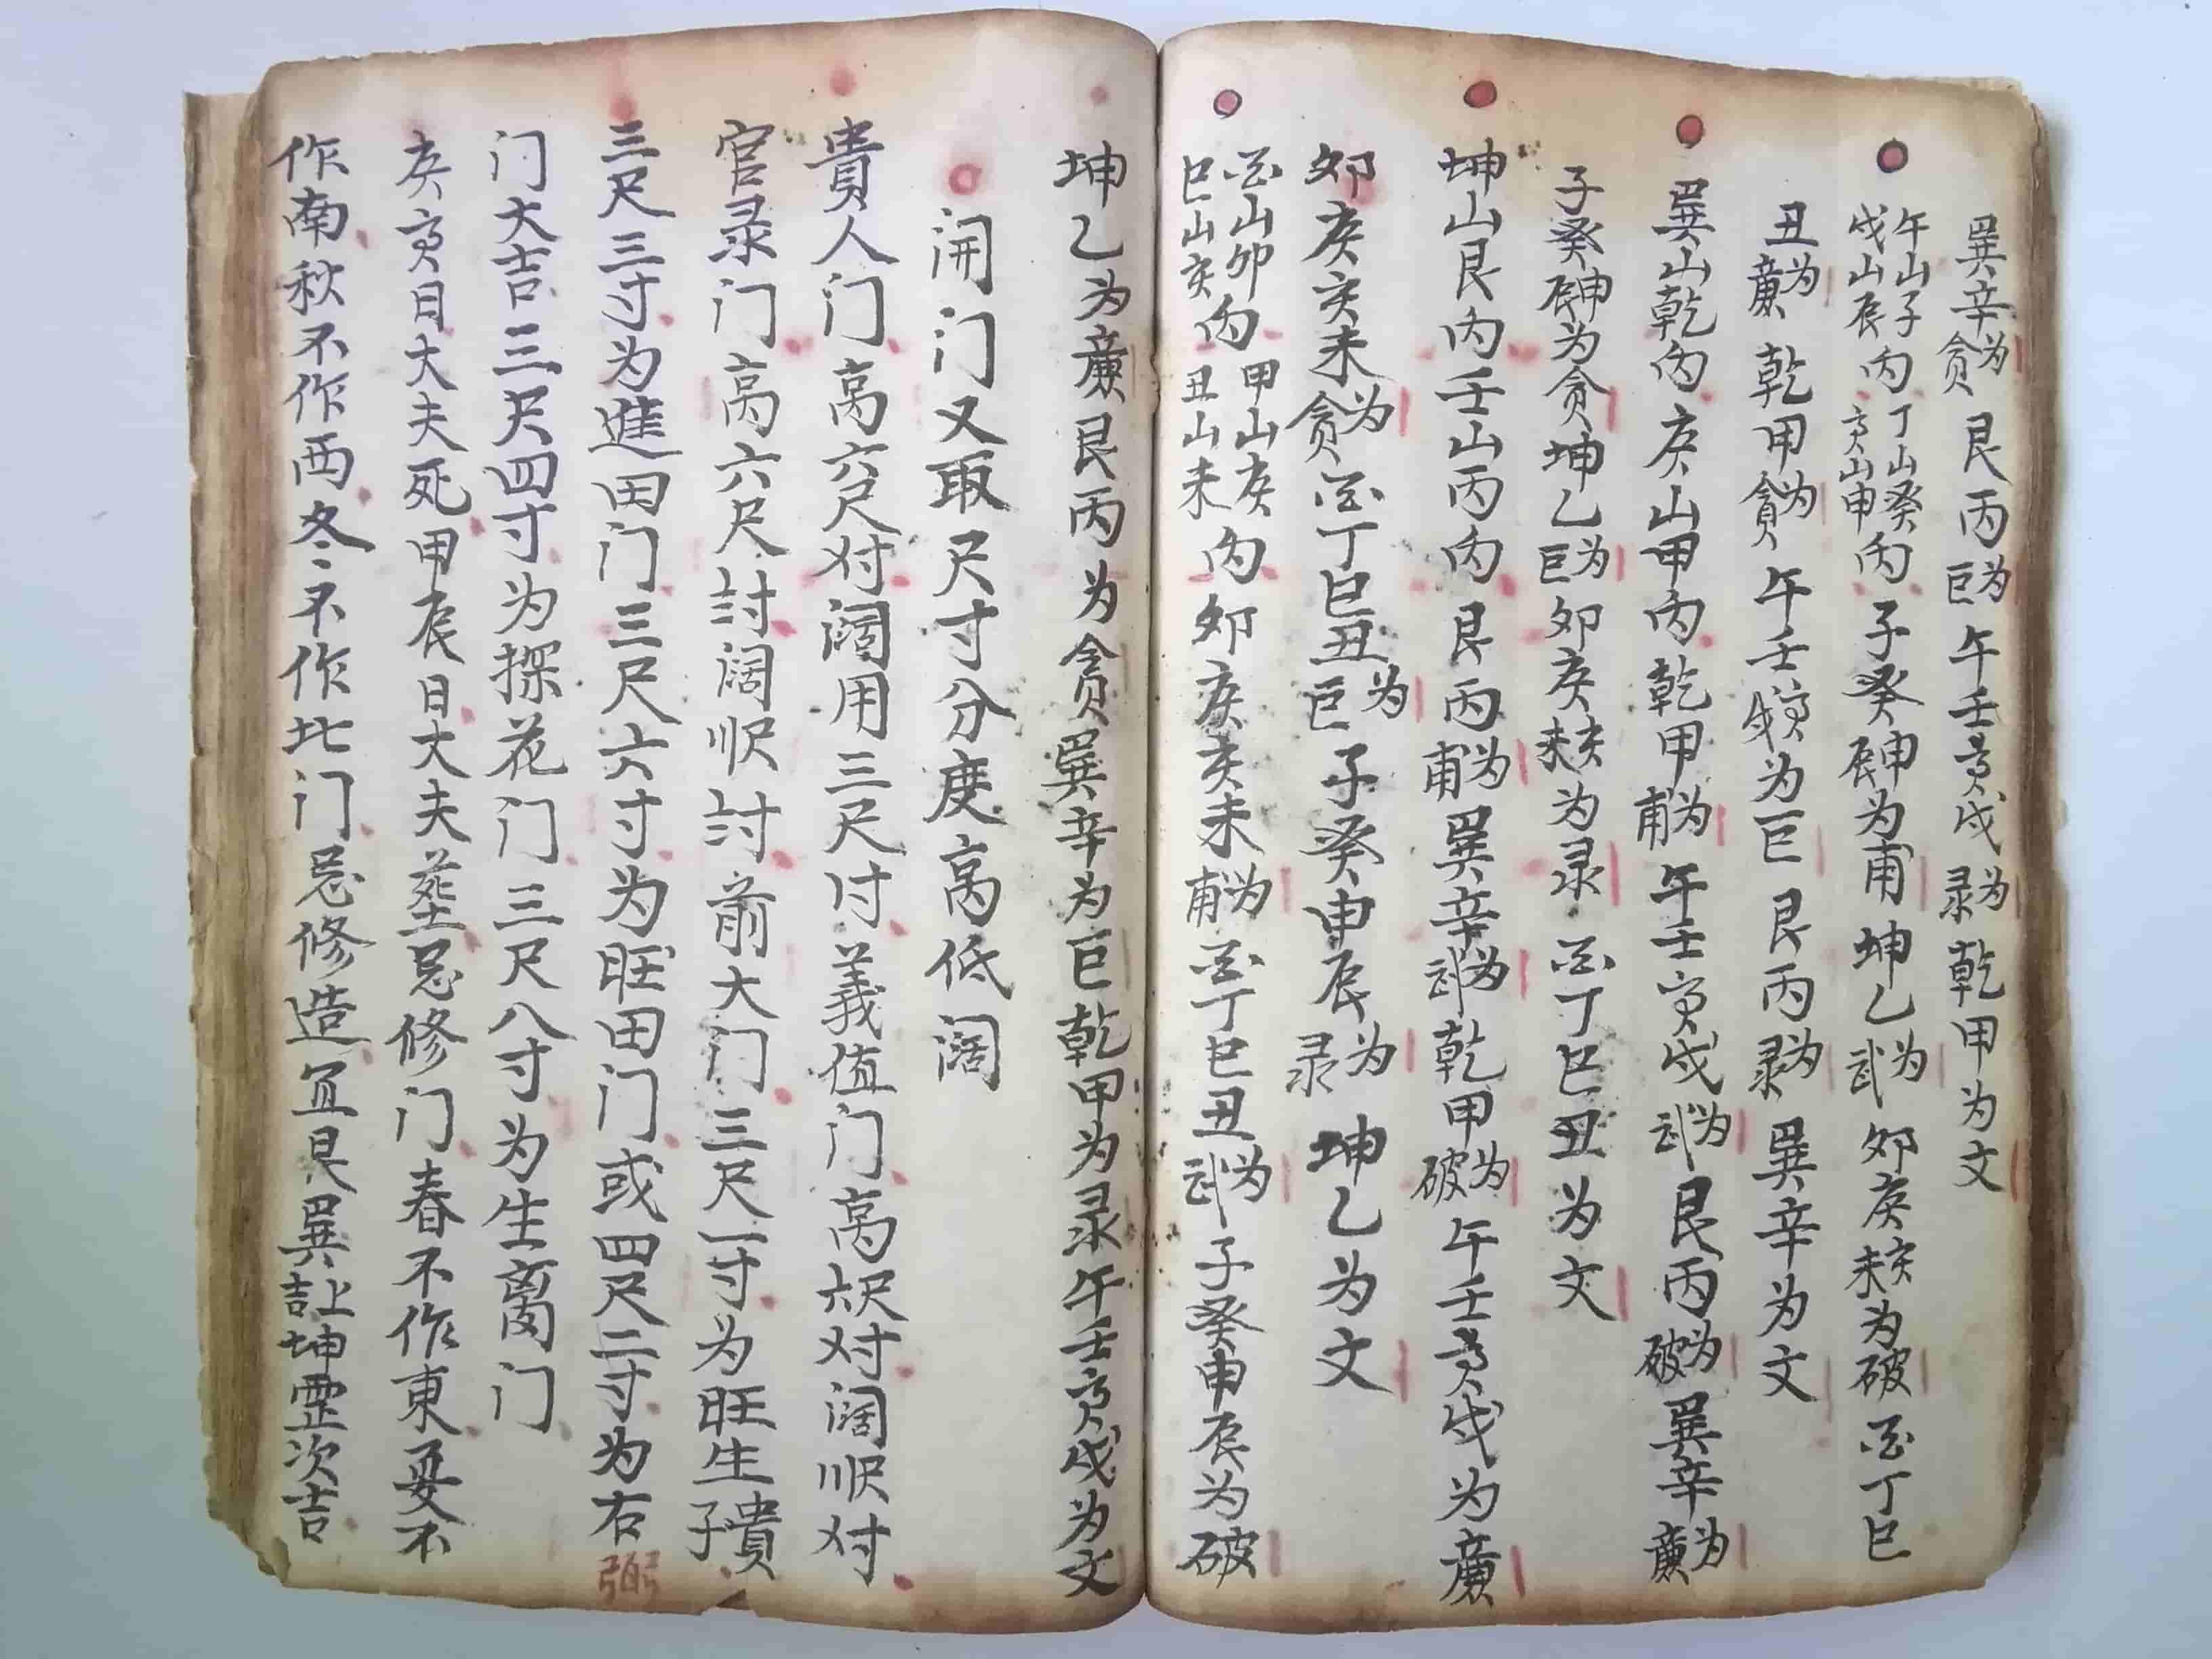 巽辛为贪艮丙为巨午壬寅戌为录乾甲为文
午山子戌山辰内丁山癸寅山申内子癸申辰为甫坤乙为武卯庚亥未为破酉丁巳
丑为廉乾甲为贪午壬寅戌为巨艮丙为录巽辛为文
巽山乾内庚山甲内乾甲为甫午壬寅戌为武艮丙为破巽辛为廉
子癸申辰为贪坤乙为巨卯庚亥未为录酉丁巳丑为文
坤山艮内壬山丙内艮丙为甫巽辛为武乾甲为破午壬寅戌为廉
卯庚亥未为贪酉丁巳丑为巨子癸申辰为录坤乙为文
酉山卯巳山亥内甲山庚丑山未内卯庚亥未为甫酉丁巳丑为武子癸申辰为破
坤乙为廉艮丙为贪巽辛为巨乾甲为录午壬寅戌为文
開门又取尺寸分度高低阔
貴人门高六尺对阔用三尺付義值门高六尺对阔顺尺对
官录门高六尺討阔顺尺討前大门三尺一寸为旺生貴子
三尺三寸为進田门三尺六寸为旺田门或四尺二寸为右弼
门大吉三尺四寸为探花门三尺八寸为生离门
庚寅日大夫死甲辰日大夫葬忌修门春不作東夏不
作南秋不作西冬不作北门忌修造宜艮巽上吉坤次吉